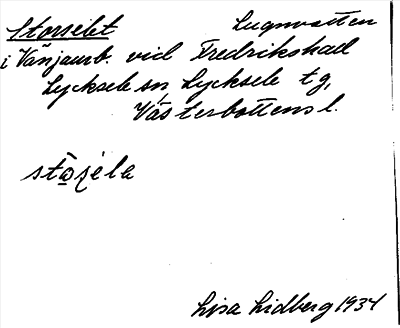 Storselet Lugnvatten
i Vänjaurb. vid Fredrikshad
Lycksele sn Lycksele tg,
Västerbottens l.
stɷʂela
Lisa Lidberg 1934